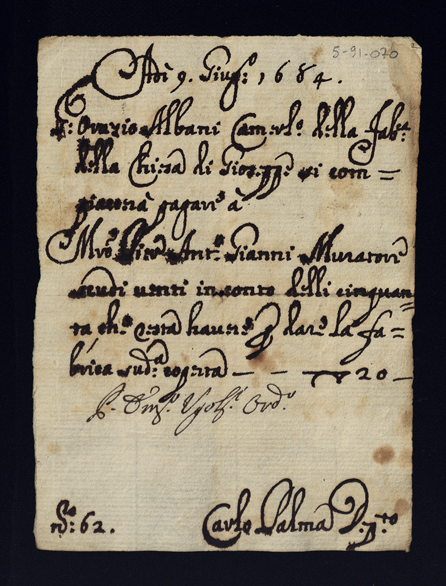 5-91-070
Adì 9. Giug.º 1684.
S.r Orazio Albani Camerl.º della Fab.ca
della Chiesa di Gioseppe vi com=
piacerà pagare à
M.ro Ant.º Gianni Muratore
scudi venti in conto delli cinquan=
ta che resta havere p dare la fa=
brica sud.a coperta — — — ▽ 20 —
Ord.º
N.º 62.
Carlo Palma D.º